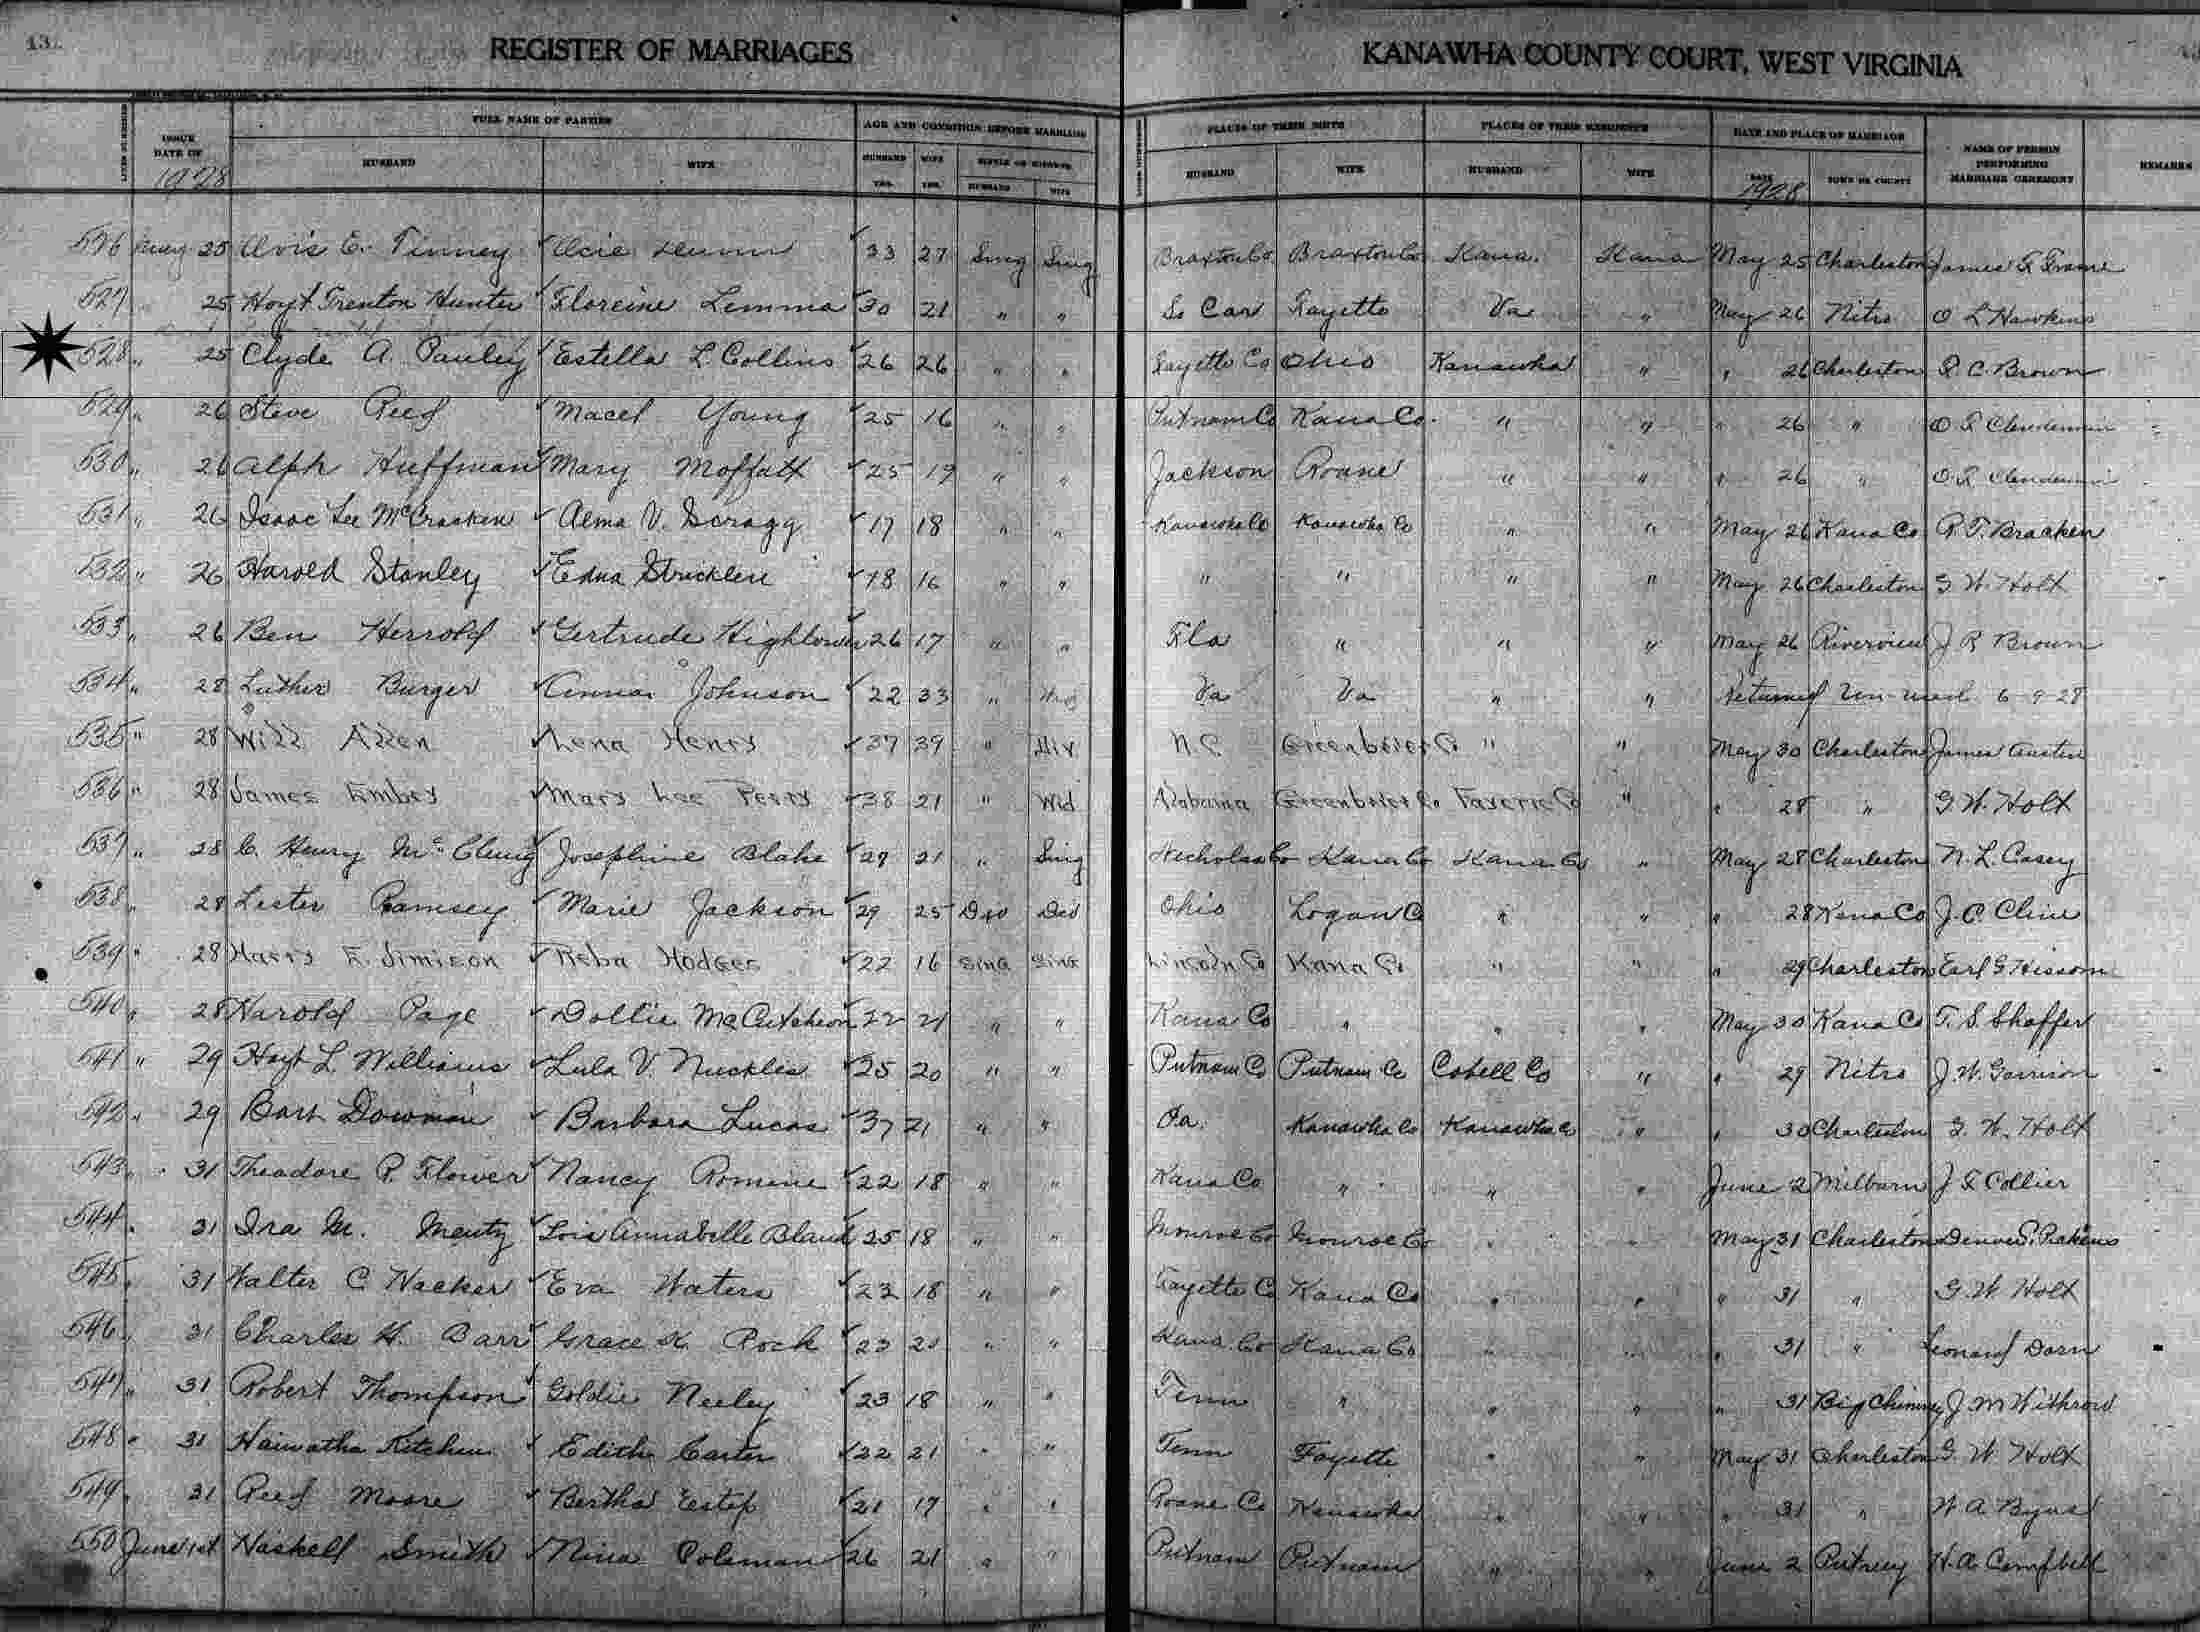 13
REGISTER OF MARRIAGES
KANAWHA COUNTY COURT, WEST VIRGINIA
LINES NUMBERED
ISSUE DATE OF
1928
FULL NAME OF PARTIES
HUSBAND
WIFE
AGE AND CONDITION BEFORE MARRIAGE
HUSBAND YRS.
WIFE YRS.
SINGLE OR WIDOWED
HUSBAND
WIFE
PLACES OF THEIR BIRTH
HUSBAND
WIFE
PLACES OF THEIR RESIDENCE
HUSBAND
WIFE
DATE AND PLACE OF MARRIAGE
DATE
1928
TOWN OR COUNTY
NAME OF PERSON PERFORMING MARRIAGE CEREMONY
REMARKS
526 May 25 Avis E. Tinney Ocie 23 27 Sing Sing Braxton Co Braxton Co Kana. Kana May 25 Charleston James F Frame
527 " 25 Hoyt Trenton Hunter Floreine Lemma 30 21 " " So Car Fayette Va " May 26 Nitro O L Hawkins
528 " 25 Clyde A. Pauley Estella L Collins 26 26 " " Fayette Co Ohio Kanawha " " 26 Charleston R C Brown
529 " 26 Steve Reed Macel Young 25 16 " " Putnam Co Kana Co. " " " 26 " O F Clendennin
530 " 26 Alph Huffman Mary Moffatt 25 19 " " Jackson Roane " " " 26 " O F Clendennin
531 " 26 Isaac Lee McCracken Alma V. Scragg 17 18 " " Kanawha Co Kanawha Co " " May 26 Kana Co R T. Bracken
532 " 26 Harold Stanley Edna Stricklen 18 16 " " " " " " May 26 Charleston G W Holt
533 " 26 Ben Herrold Gertrude Hightower 26 17 " " Fla " " " May 26 Riverview J R Brown
534 " 28 Luther Burger Anna Johnson 22 33 " Va Va " " Returned Un-used 6-9-28
535 " 28 Will Allen Lena Henry 37 39 " Div N.C. Greenbrier Co " " May 30 Charleston James Austin
536 " 28 James Embry Mary Lee Perry 38 21 " Wid Alabama Greenbrier Co Fayette Co " " 28 " G W. Holt
537 " 28 C. Henry McClung Josephine Blake 27 21 " Sing Nicholas Co Kana Co Kana Co " May 28 Charleston N. L. Casey
538 " 28 Lester Ramsey Marie Jackson 29 25 Div Div Ohio Logan Co " " " 28 Kana Co J. C. Cline
539 " 28 Harry E. Jimison Reba Hodges 22 16 Sing Sing Lincoln Co Kana Co " " " 29 Charleston Earl G Hissom
540 " 28 Harold Page Dollie McCutcheon 22 21 " " Kana Co " " " May 30 Kana Co T. S. Shaffer
541 " 29 Hoyt L. Williams Lula V. Nuckles 25 20 " " Putnam Co Putnam Co Cabell Co " " 29 Nitro J. W. Garrison
542 " 29 Bart Dowman Barbara Lucas 37 21 " " Pa. Kanawha Co Kanawha Co " " 30 Charleston G. W. Holt
543 " 31 Theodore R. Flower Nancy Romine 22 18 " " Kana Co " " " June 2 Milburn J F Collier
544 " 31 Ira M. Mentz Lois Annabelle Bland 25 18 " " Monroe Co Monroe Co " " May 31 Charleston Denver C. Pickens
545 " 31 Walter C Hacker Eva Waters 23 18 " " Fayette Co Kana Co " " " 31 " G. W Holt
546 " 31 Charles H. Barr Grace K Rock 23 21 " " Kana. Co Kana Co " " " 31 " Leonard Dorn
547 " 31 Robert Thompson Goldie Neeley 23 18 " " Tenn " " " " 31 Big Chimney J M Withrow
548 " 31 Haiwatha Kitchen Edith Carter 22 21 " " Tenn Fayette " " May 31 Charleston G. W Holt
549 " 31 Reed Moore Bertha Estep 21 17 " " Roane Co Kanawha " " " 31 " W A Byus
550 June 1st Haskell Smith Nina Coleman 26 21 " " Putnam Putnam " " June 2 Putney H. A. Campbell